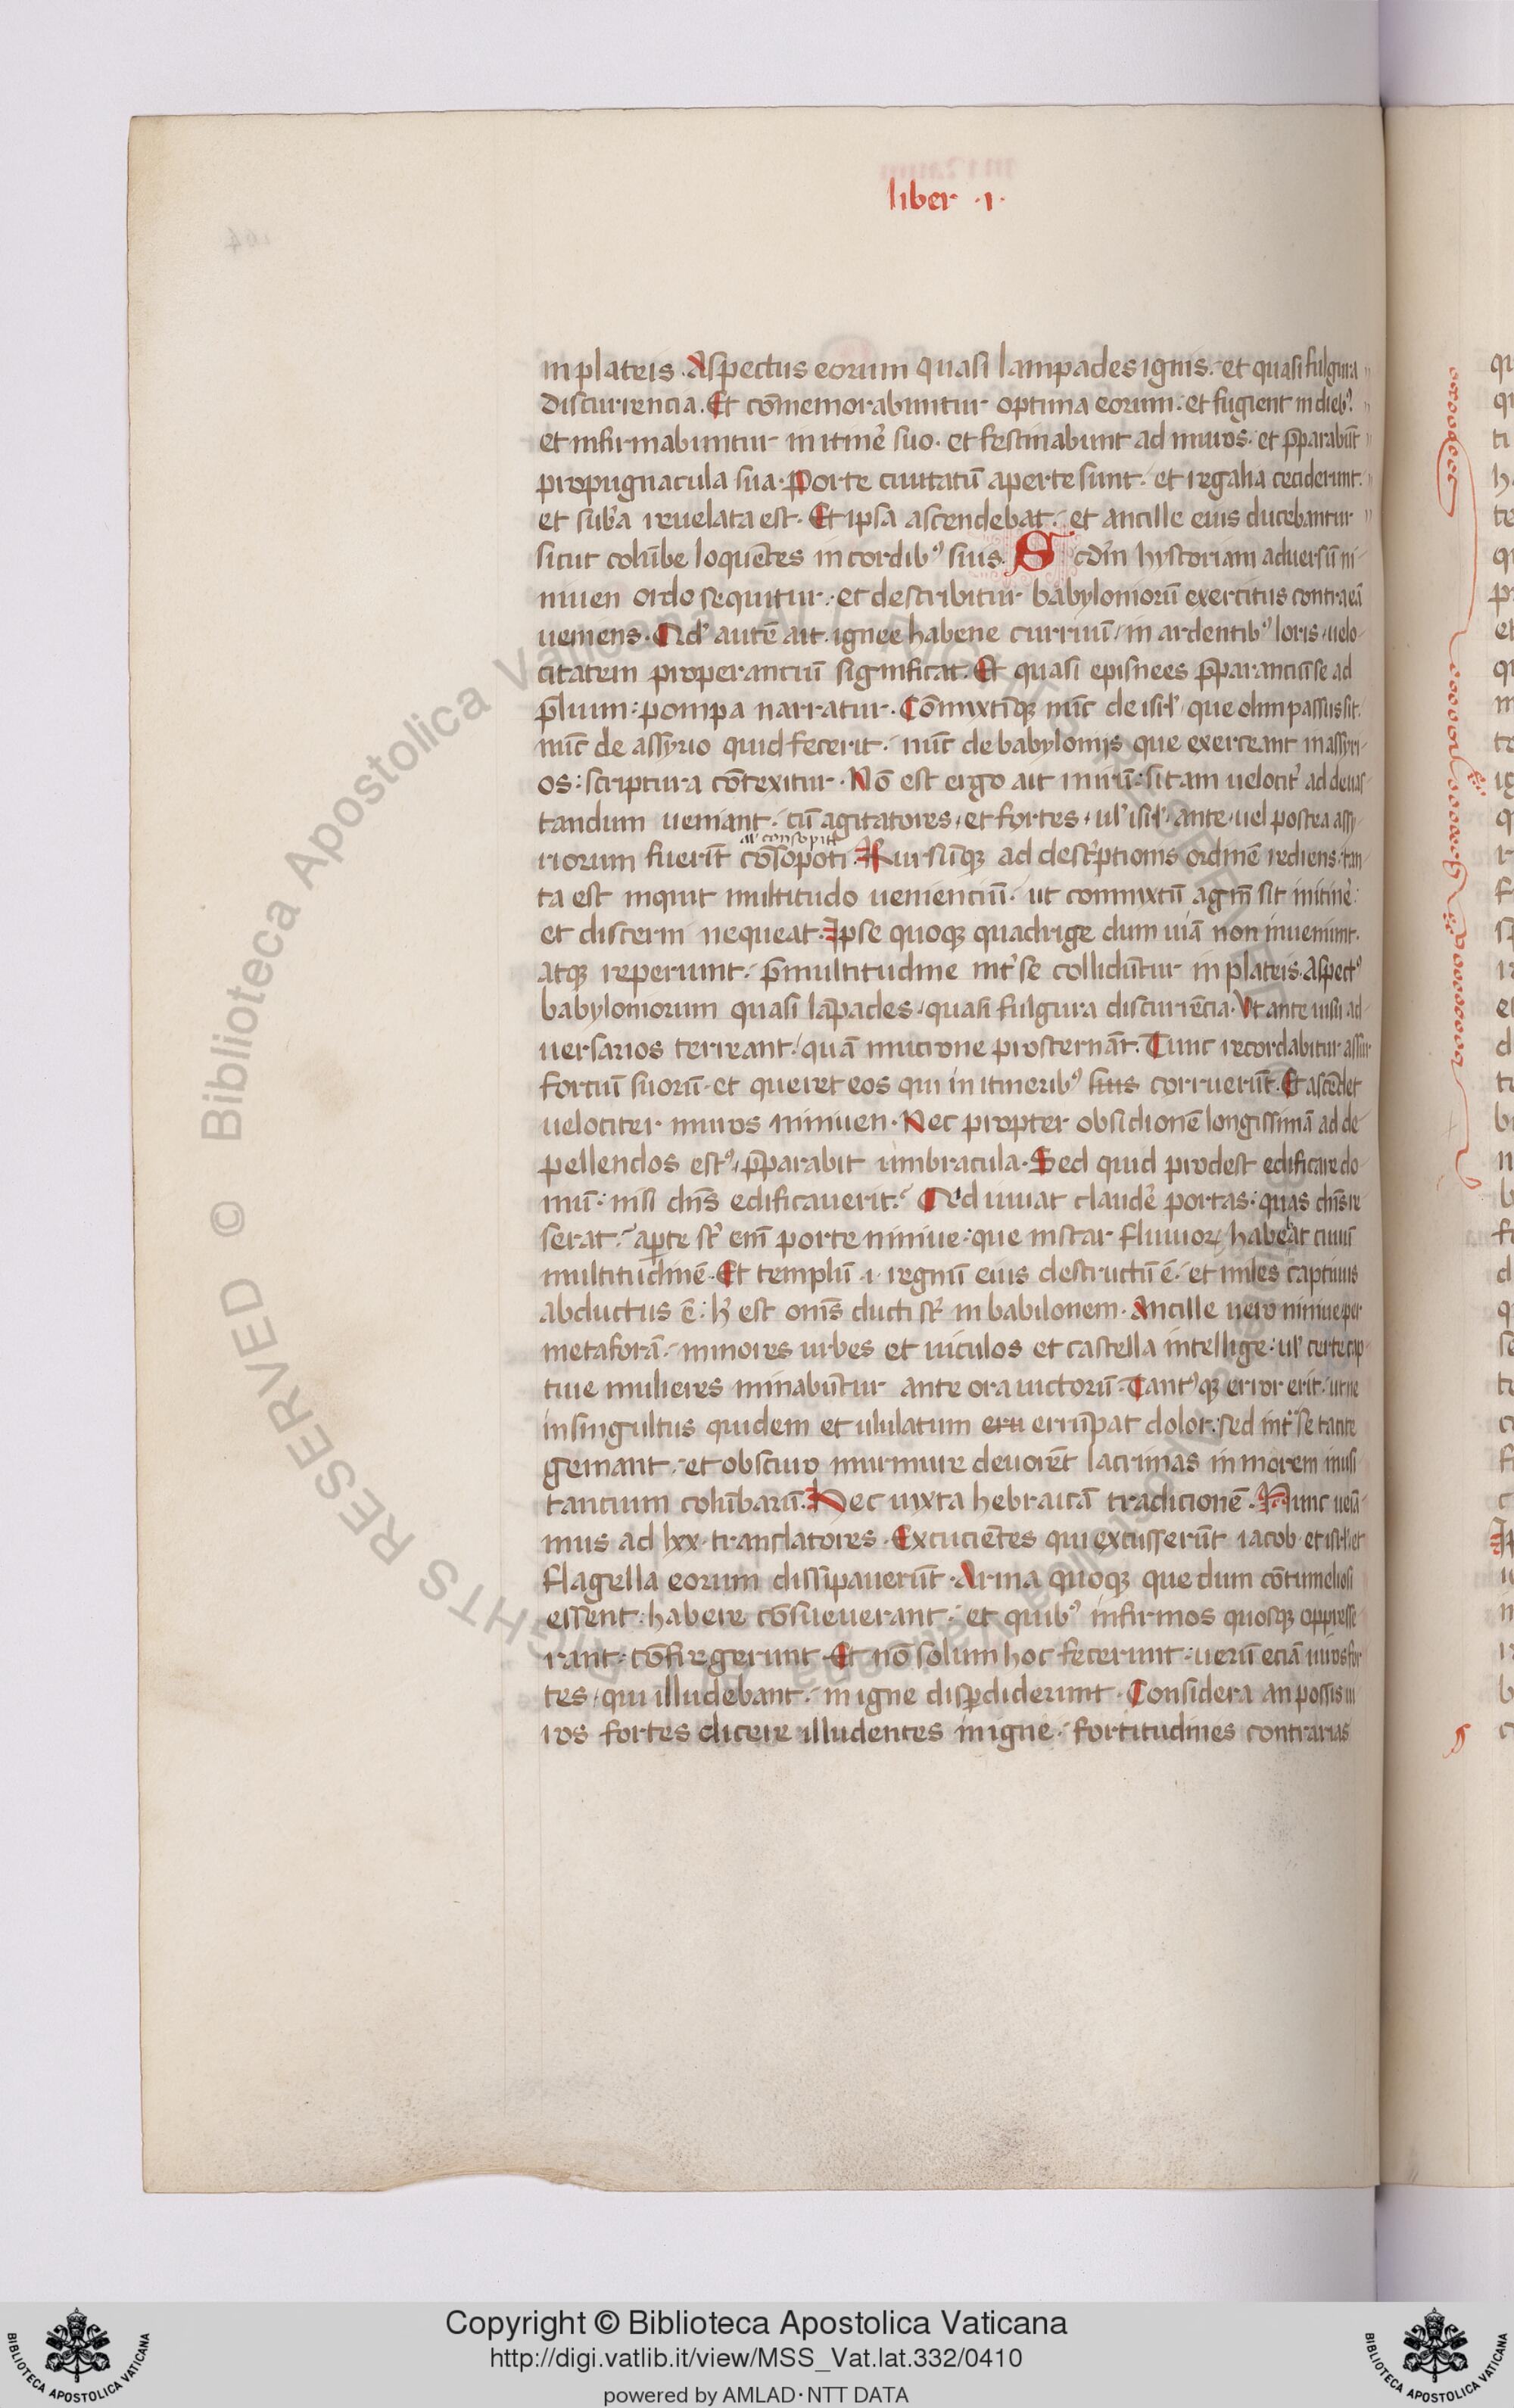 liber ·1·
in plateis. Aspectus eorum quasi lampades ignis. et quasi fulgura
discurrencia. Et cōmemorabuntur optima eorum. et fugient in dieb⁹
et infirmabuntur in itinē suo. et festinabunt ad muros. et p̄parabūt
propugnacula sua. Porte ciuitatū aperte sunt. et regalia ceciderunt.
et sub̄a reuelata est. Et ipsa ascendebat. et ancille eius ducebantur
sicut colūbe loquētes in cordib⁹ suis. Scđm hystoriam aduersū ni-
niuen ordo sequitur. et describitur babyloniorū exercitus contra eā
ueniens. Qđ autē ait. ignee habene curruū / in ardentib⁹ loris / uelo-
citatem properanciū significat. Et quasi epismees p̄paranciū se ad
p̄lium: pompa narratur. Cōmixtīq; nūc de isrl' que olim passus sit.
nūc de assyrio quid fecerit. nūc de babylonijs que exerceant in assyri-
os: scriptura cōtexitur. Nō est ergo ait mirū: si tam uelocit' ad deuas-
tandum ueniant. cū agitatores, et fortes, ul' isrl', ante, uel postea assy-
al' consopiti
riorum fuerīt cōsopoti. Rursūq; ad desc'ptionis ordinē rediens. tan-
ta est inquit multitudo uenienciū. ut commixtū agm̄ sit in itinē:
et discerni nequeat. Ipse quoq; quadrige dum uiā non inueniunt.
atq; reperiunt. p̄ multitudine int' se colliduntur in plateis. Aspect⁹
babyloniorum quasi lāpades, quasi fulgura discurrēcia. Ut ante uisu ad-
uersarios terreant. quā mucrone prosternāt. Tunc recordabitur assur
fortiū suorū. et queret eos qui in itinerib⁹ suis corruerūt. Et ascēdet
uelociter muros niniuen. Nec propter obsidionē longissimā ad de-
pellendos est⁹, p̄parabit umbracula. Sed quid prodest edificare do-
mū: nisi dn̄s edificauerit? Qd iuuat claudē portas: quas dn̄s re-
serat? apte st' em̄ porte niniue: que instar fluuioꝝ habebat ciuiū
multitudinē. Et templū .i. regnū eius destructū ē. et miles captiuus
abductus ē: h' est om̄s ducti st' in babilonem. Ancille uero niniue per
metaforā. minores urbes et uiculos et castella intellige. ul' certe cap-
tiue mulieres minabuntur ante ora uictorū. Tant⁹q; error erit. ut ne
in singultus quidem et ululatum eru errūpat dolor: sed int' se tante
gemant. et obscuro murmure deuorēt lacrimas in morem musi-
tancium colūbarū. Hec iuxta hebraicā tradicionē. Nunc uenia-
mus ad lxx. translatores. Excucientes qui excusserūt iacob. et isrl'. et
flagella eorum dissipauerūt. Arma quoq; que dum cōtumeliosi
essent: habere cōsueuerant. et quib⁹ infirmos quosq; oppresse-
rant: cōfregerunt. Et nō solum hoc fecerunt: uerū eciā uiros for-
tes, qui illudebant. in igne disp̄diderunt. Considera an possis ui-
ros fortes dicere illudentes in igne. fortitudines contrarias
Copyright © Biblioteca Apostolica Vaticana
http://digi.vatlib.it/view/MSS_Vat.lat.332/0410
powered by AMLAD·NTT DATA